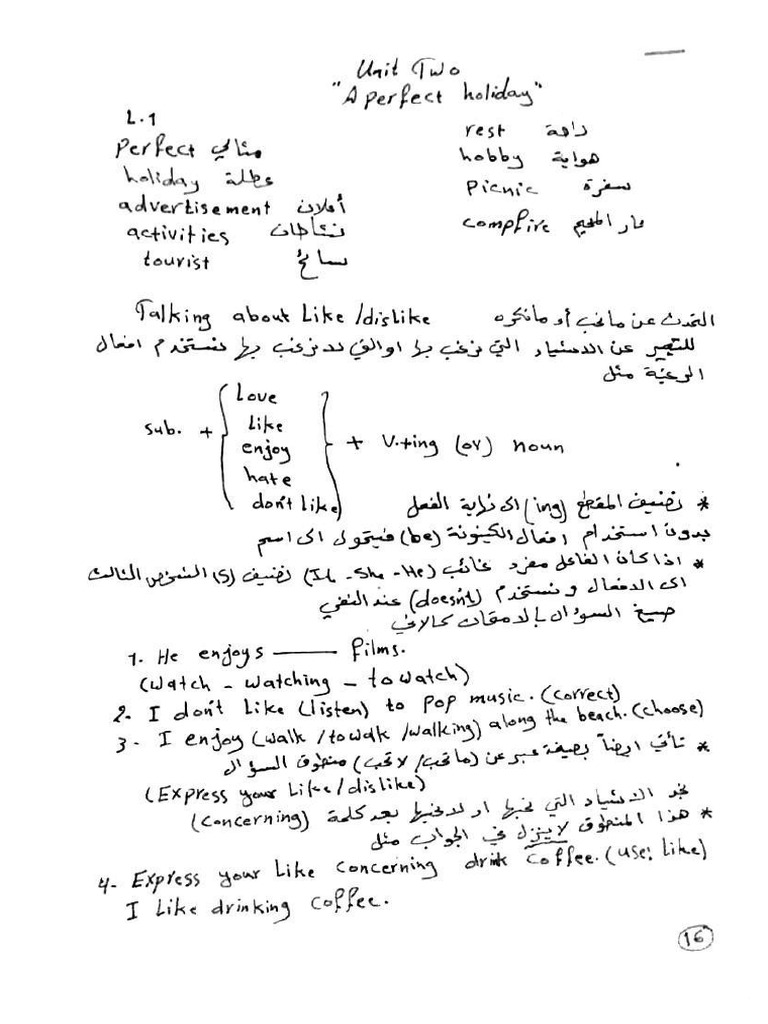 Unit Two
"A perfect holiday"
L.1
perfect مثالي
holiday عطلة
advertisement أعلان
activities نشاطات
tourist سائح
rest راحة
hobby هواية
picnic سفرة
compfire نار المخيم
Talking about Like/dislike التحدث عن مانحب أو مانكره
للتعبير عن الاشياء التي نرغب بها او التي لا نرغب بها نستخدم افعال
الرغبة مثل
sub. + { Love
Like
enjoy
hate
don't like } + V.+ing (or) noun
* نضيف المقطع (ing) الى نهاية الفعل
بدون استخدام افعال الكينونة (be) فيتحول الى اسم
* اذا كان الفاعل مفرد غائب (It - She - He) نضيف (s) الشخص الثالث
الى الافعال ونستخدم (doesn't) عند النفي
صيغ السؤال بالامتحان كالاتي
1. He enjoys ——— films.
(watch - watching - to watch)
2- I don't like (listen) to pop music. (correct)
3- I enjoy (walk / to walk / walking) along the beach. (choose)
* تأتي ايضاً بصيغة عبر عن (ماتحب / لاتحب) منطوق السؤال
(Express your like/dislike)
نجد الاشياء التي نحبها او لانحبها بعد كلمة (concerning)
* هذا المنطوق لاينزل في الجواب مثل
4- Express your like concerning drink coffee. (use: like)
I like drinking coffee.
16